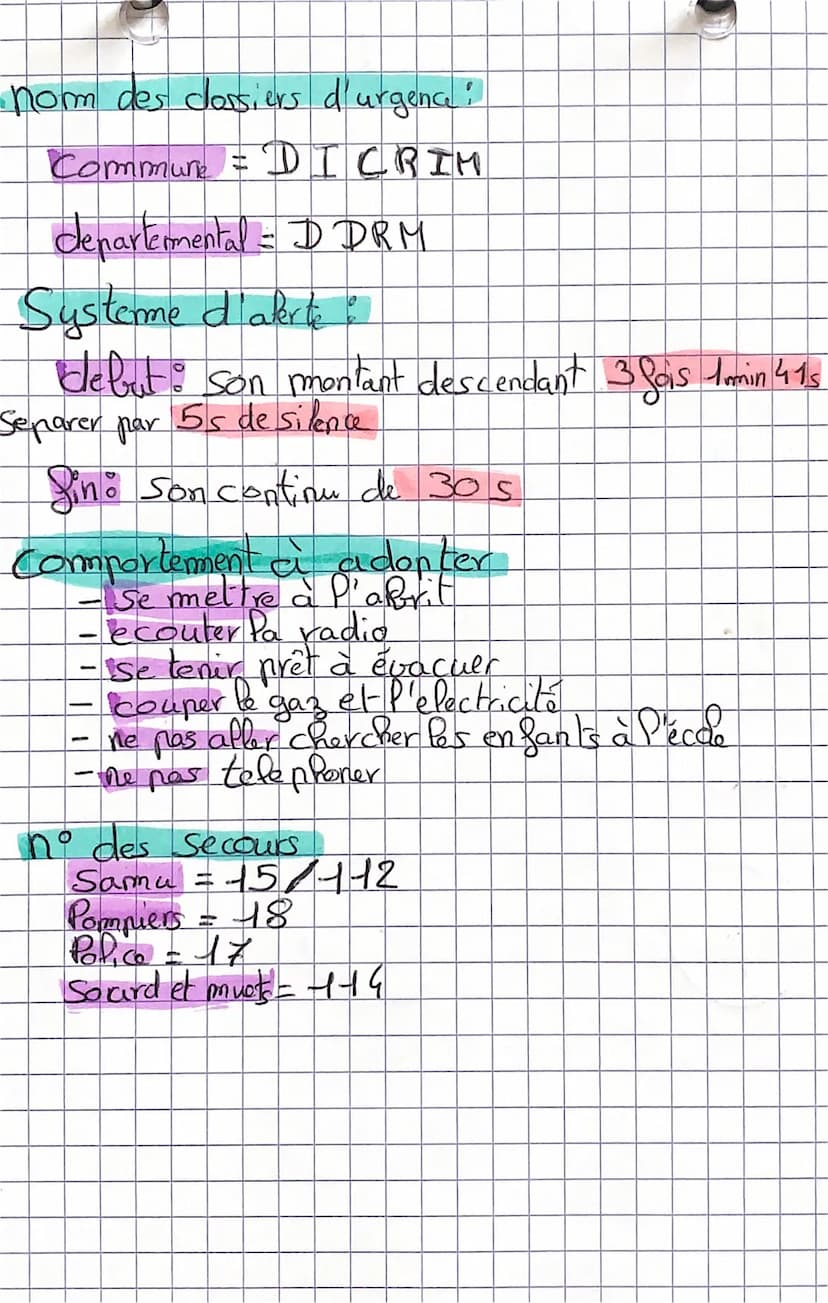 nom des dossiers d'urgence :
commune = DICRIM
departemental = DDRM
Systeme d'alerte :
debut : son montant descendant 3 fois 1min 41s
separer par 5s de silence
fin : son continu de 30s
comportement à adopter
- se mettre à l'abrit
- ecouter la radio
- se tenir prêt à évacuer
- couper le gaz et l'electricité
- ne pas aller chercher les enfants à l'école
- ne pas telephoner
n° des secours
Samu = 15/112
Pompiers = 18
Police = 17
Sourd et muets = 114